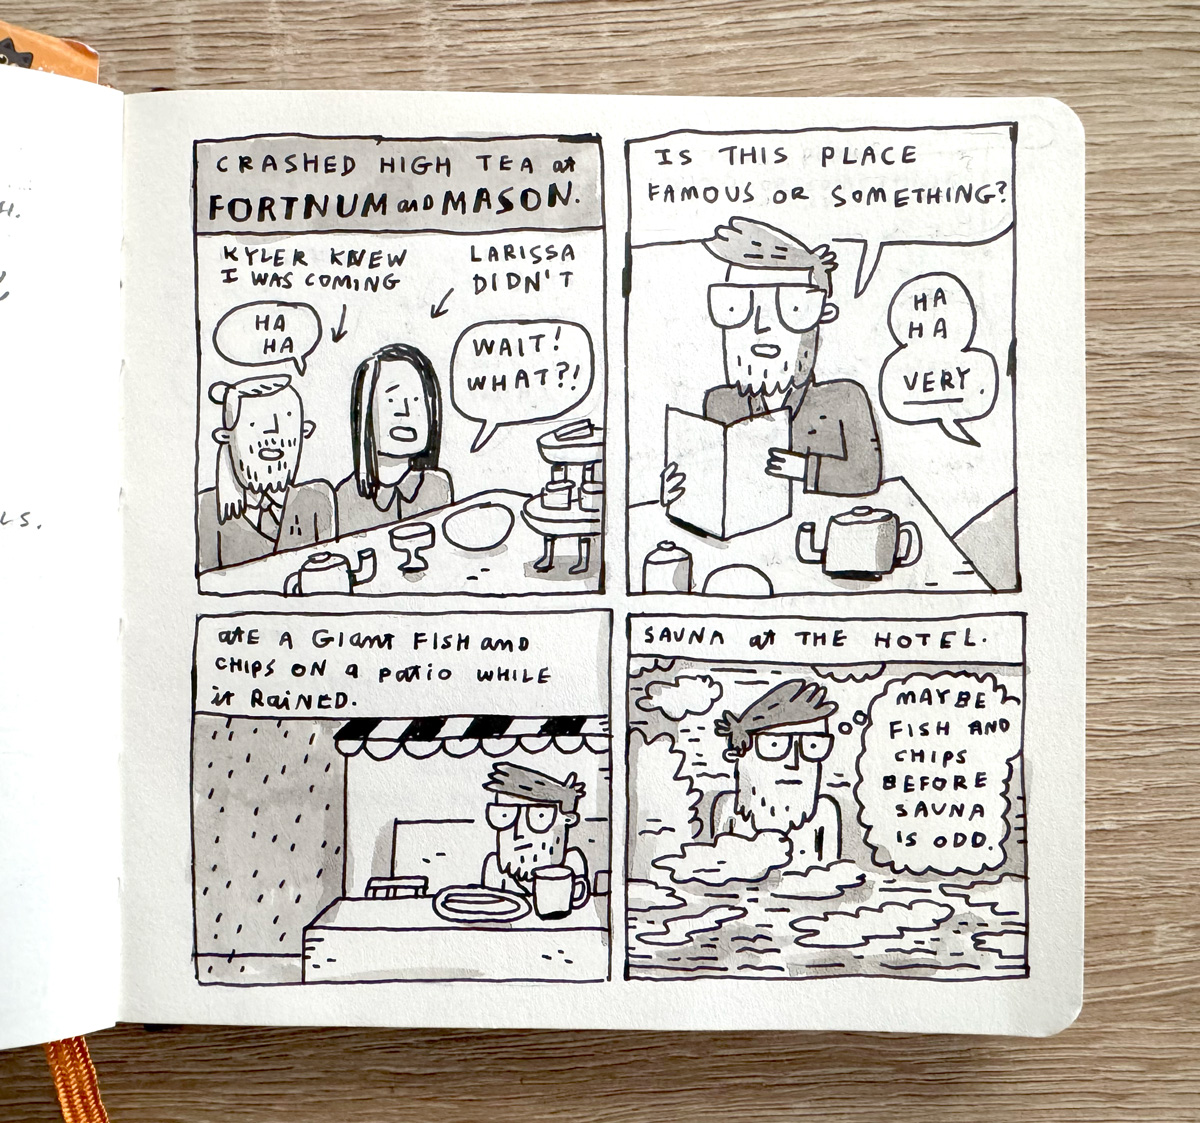 CRASHED HIGH TEA at
FORTNUM AND MASON.
KYLER KNEW
I WAS COMING
LARISSA
DIDN'T
HA
HA
WAIT!
WHAT?!
IS THIS PLACE
FAMOUS OR SOMETHING?
HA
HA
VERY.
atE A GIant FISH anD
CHIPS ON a patio WHILE
it RaiNED.
SAUNA at THE HOTEL.
MAYBE
FISH AND
CHIPS
BEFORE
SAUNA
IS ODD.